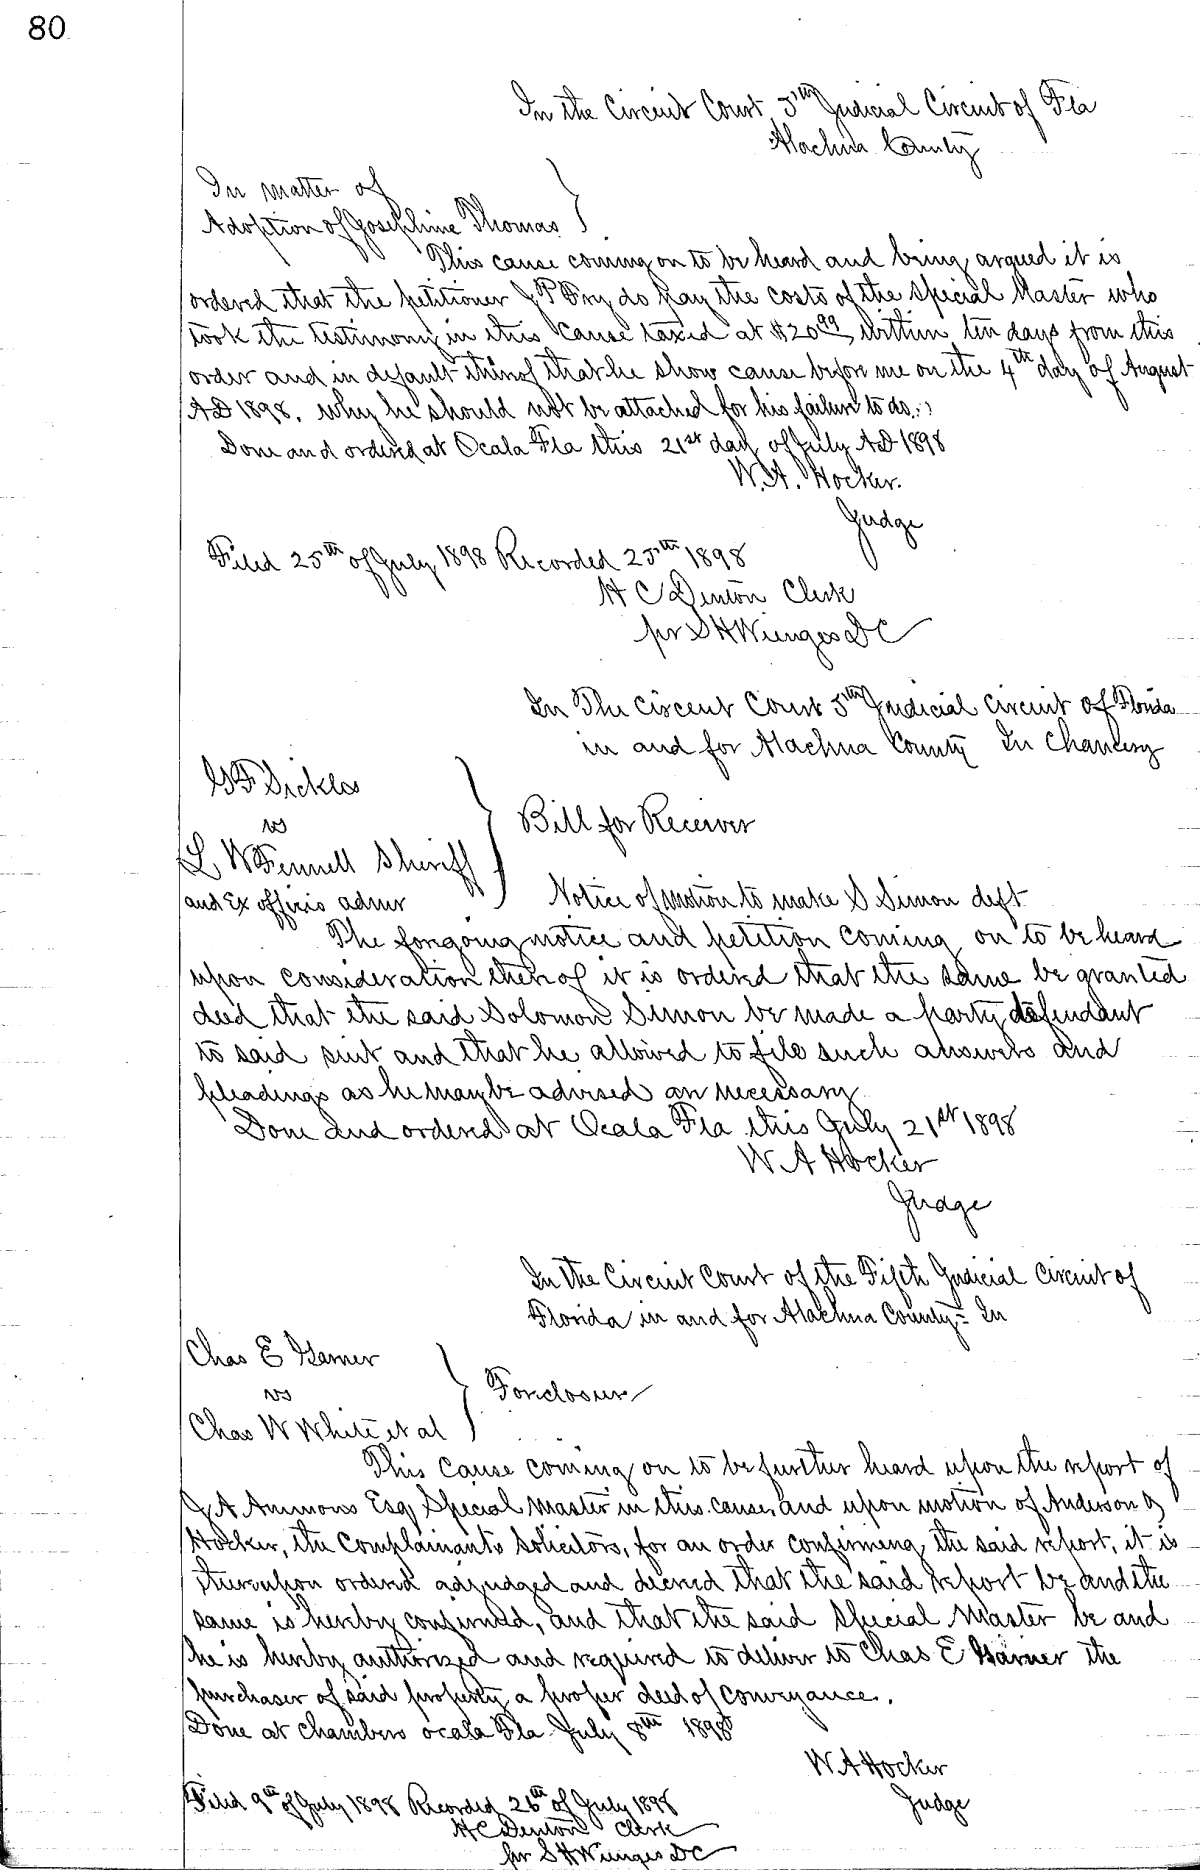 80
In the Circuit Court 5th Judicial Circuit of Fla
Alachua County
In matter of
Adoption of Josephine Thomas
This cause coming on to be heard and being argued it is
ordered that the petitioner J P Fry do pay the costs of the Special Master who
took the testimony in this cause taxed at $20 99 within ten days from this
order and in default thereof that he show cause before me on the 4th day of August
AD 1898. why he should not be attached for his failure to do.
Done and ordered at Ocala Fla this 21st day of July AD 1898
W. A. Hocker.
Judge
Filed 25th of July 1898 Recorded 25th 1898
H C Denton Clerk
pr S H Wienges DC
In The Circuit Court 5th Judicial Circuit of Florida
in and for Alachua County In Chancery
Sickles
vs
L W Fennell Sheriff
and Ex officio admr
Bill for Receiver
Notice of motion to make S Simon deft
The forgoing notice and petition coming on to be heard
upon consideration thereof it is ordered that the same be granted
deed that the said Solomon Simon be made a party defendant
to said suit and that he allowed to file such answers and
pleadings as he may be advised are necessary
Done and ordered at Ocala Fla this July 21st 1898
W A Hocker
Judge
In the Circuit Court of the Fifth Judicial Circuit of
Florida in and for Alachua County - In
Chas E Garner
vs
Chas W White et al
Foreclosure
This Cause coming on to be further heard upon the report of
J A Ammons Esq Special Master in this cause, and upon motion of Anderson &
Hocker, the Complainants Solicitors, for an order confirming the said report, it is
thereupon ordered adjudged and decreed that the said report be and the
same is hereby confirmed, and that the said Special Master be and
he is hereby authorized and required to deliver to Chas E Garner the
purchaser of said property a proper deed of conveyance.
Done at Chambers Ocala Fla July 8th 1898
W A Hocker
Judge
Filed 9th of July 1898 Recorded 26th of July 1898
H C Denton Clerk
pr S H Wienges DC